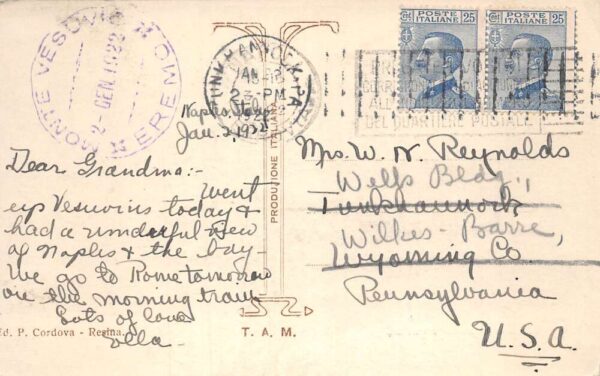 MONTE VESUVIO
2-GEN 1922
EREMO
TUNKHANNOCK PA.
JAN
PM
POSTE ITALIANE 25
POSTE ITALIANE 25
Naples, Italy
Jan. 2, 1922
Dear Grandma:-
Went
up Vesuvius today &
had a wonderful view
of Naples & the bay-
We go to Rome tomorrow
on the morning train
Lots of love
Ella-
Ed. P. Cordova - Resina.
PRODUZIONE ITALIANA
T. A. M.
Mrs. W. N. Reynolds
Wells Bldg.,
Tunkhannock
Wilkes-Barre,
Wyoming Co
Pennsylvania
U.S.A.